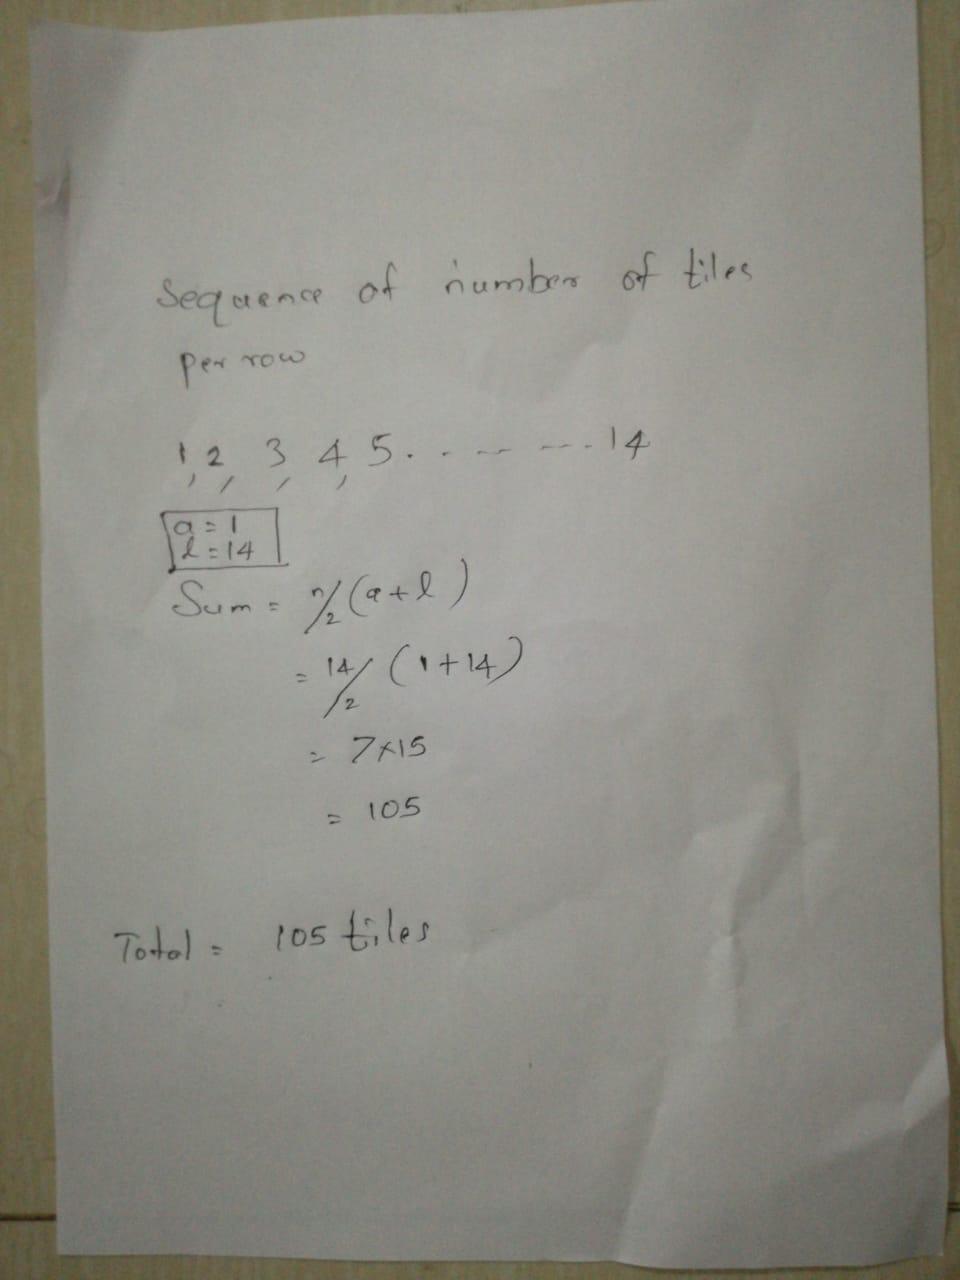 Sequence of number of tiles
per row
1, 2, 3, 4, 5. . -- --. 14
a = 1
l = 14
Sum = n/2 (a + l)
= 14/2 (1 + 14)
= 7 × 15
= 105
Total = 105 tiles